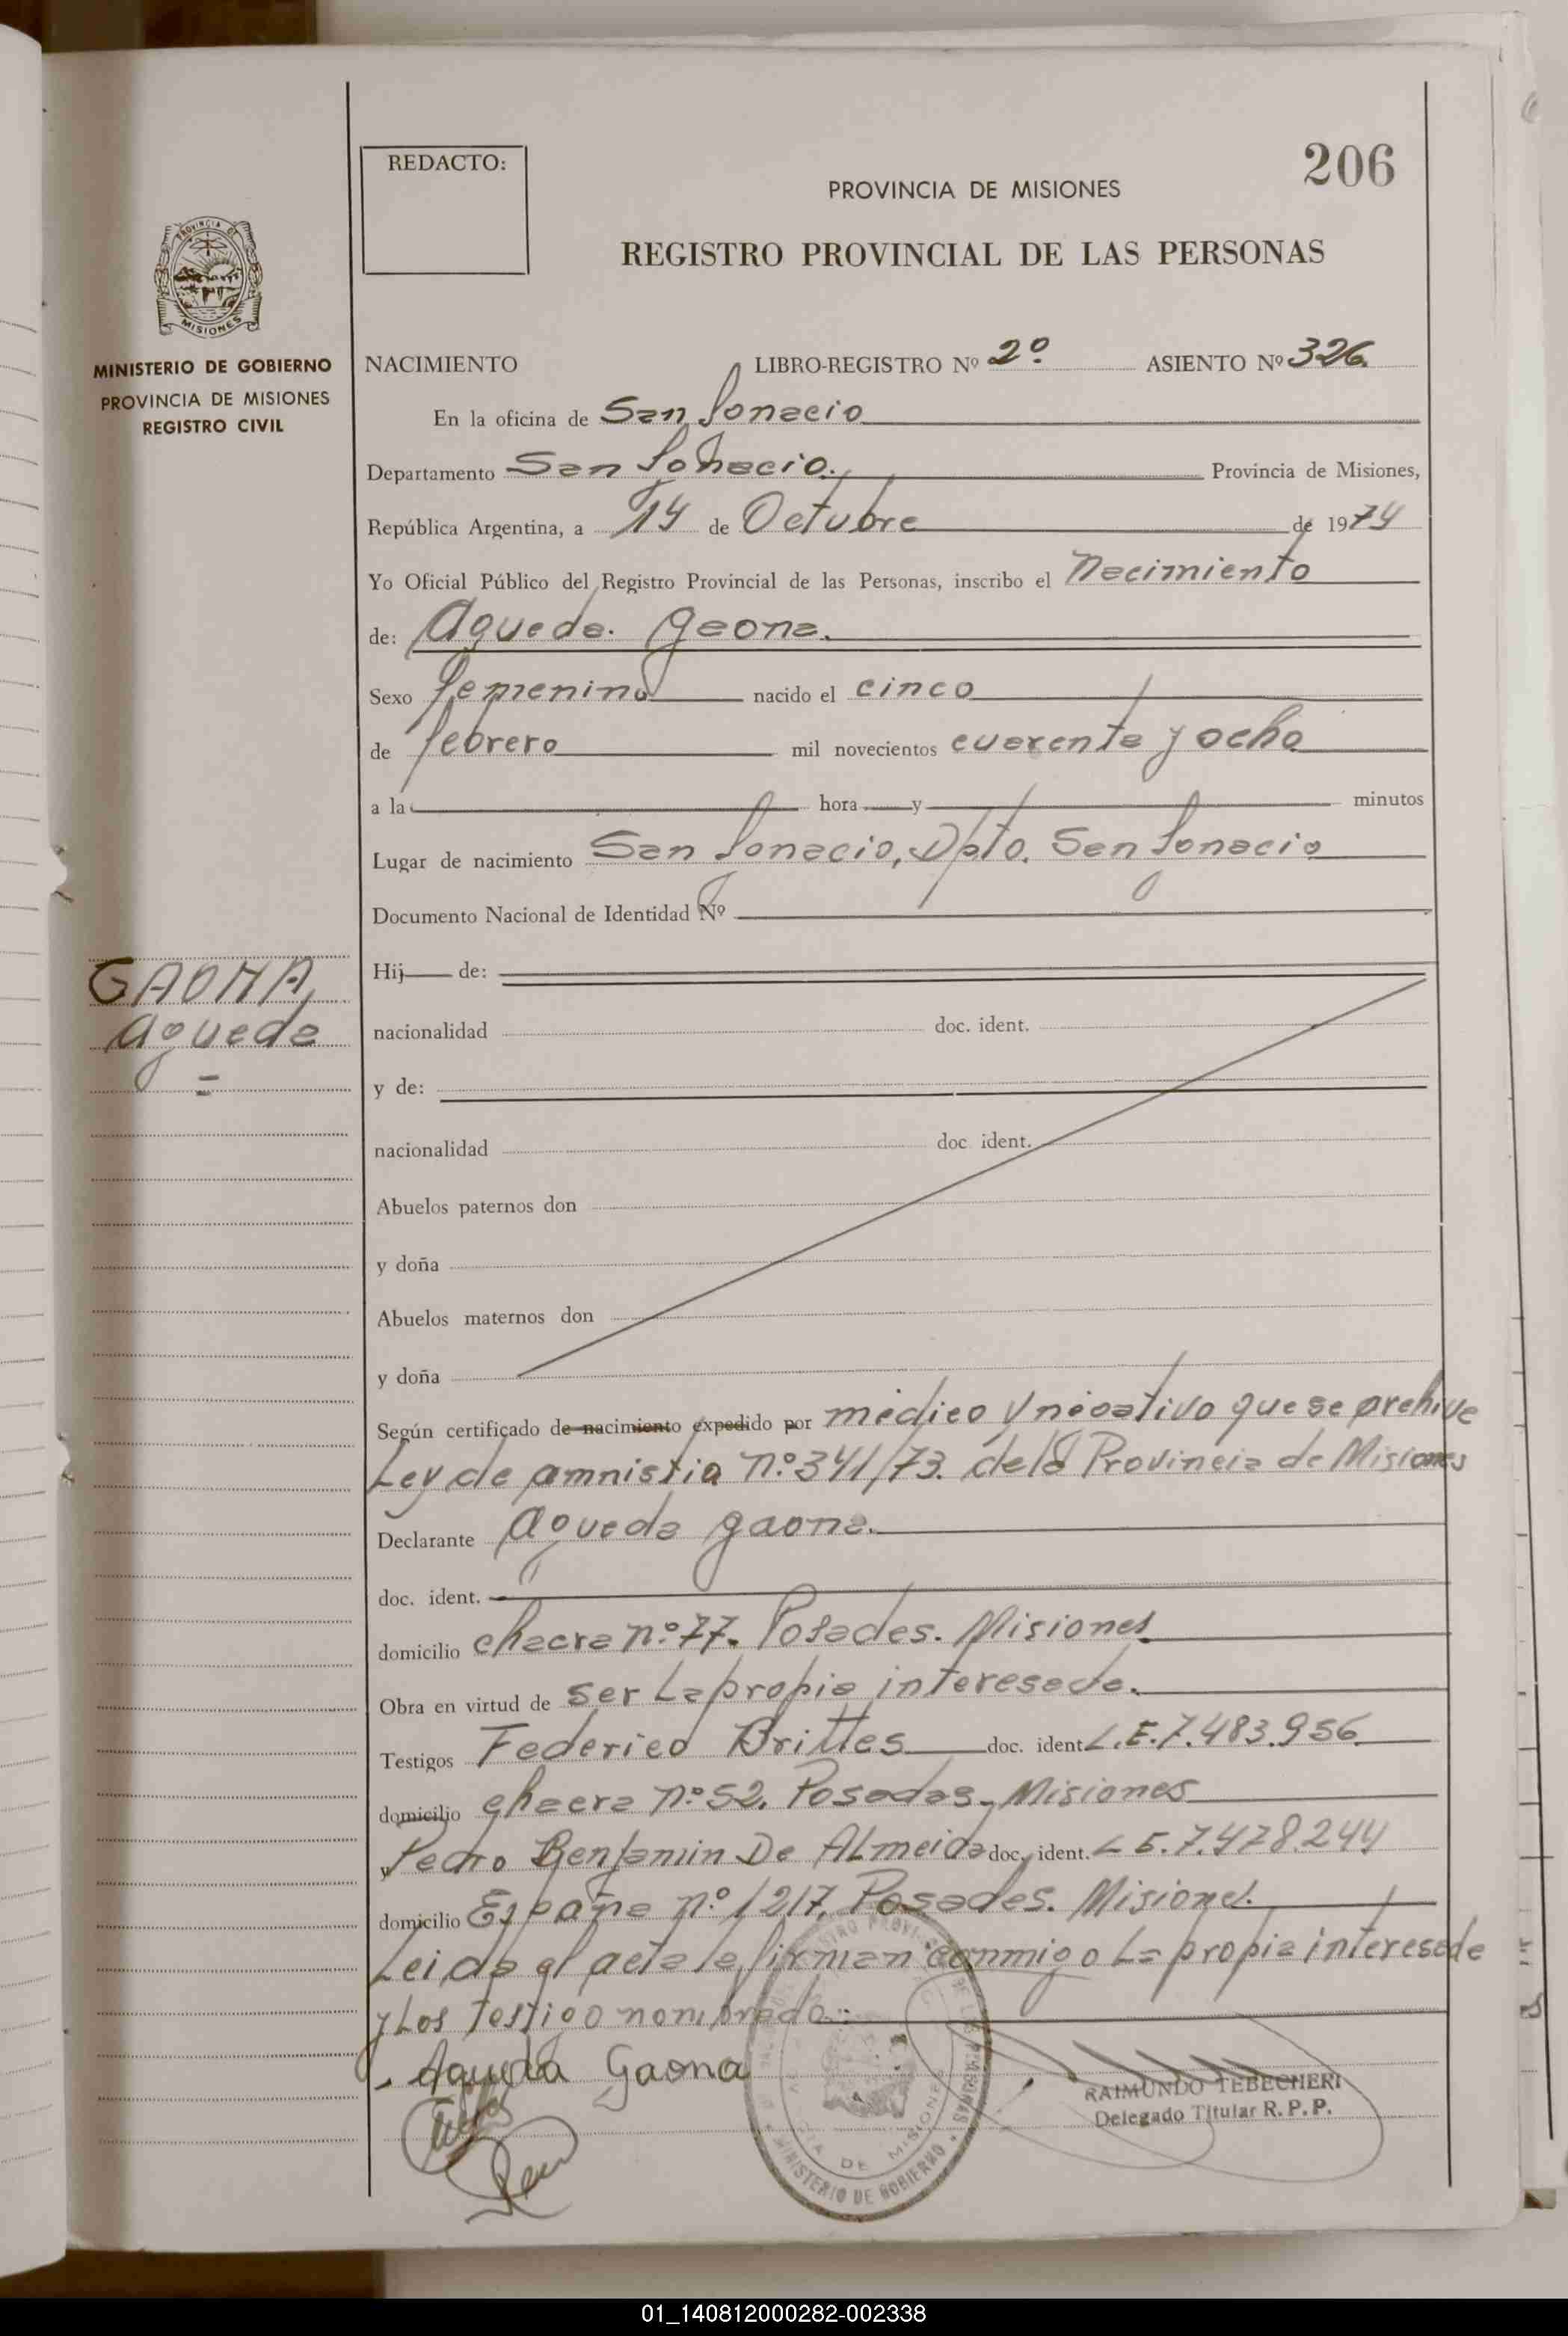 206
REDACTO:
PROVINCIA DE MISIONES
REGISTRO PROVINCIAL DE LAS PERSONAS
PROVINCIA DE
MISIONES
MINISTERIO DE GOBIERNO
PROVINCIA DE MISIONES
REGISTRO CIVIL
NACIMIENTO LIBRO-REGISTRO Nº 2º ASIENTO Nº 326.
En la oficina de San Ignacio
Departamento San Ignacio. Provincia de Misiones,
República Argentina, a 14 de Octubre de 1974
Yo Oficial Público del Registro Provincial de las Personas, inscribo el Nacimiento
de: Agueda. Gaona.
Sexo femenino nacido el cinco
de febrero mil novecientos cuarenta y ocho
a la hora y minutos
Lugar de nacimiento San Ignacio, Dpto. San Ignacio
Documento Nacional de Identidad Nº
GAONA,
Agueda
Hij de:
nacionalidad doc. ident.
y de:
nacionalidad doc. ident.
Abuelos paternos don
y doña
Abuelos maternos don
y doña
Según certificado de nacimiento expedido por médico y negativo que se archiva
Ley de amnistia nº 341/73. de la Provincia de Misiones
Declarante Agueda Gaona.
doc. ident.
domicilio chacra nº 77. Posadas. Misiones
Obra en virtud de ser La propia interesada.
Testigos Federico Brittes doc. ident. L.E. 7.483.956
domicilio chacra nº 52. Posadas. Misiones
y Pedro Benjamin De Almeida doc. ident. L E. 7.478.244
domicilio España nº 1217. Posadas. Misiones.
Leida el acta la firman conmigo La propia interesada
y Los testigo nombrado.
Agueda Gaona
RAIMUNDO TEBECHERI
Delegado Titular R. P. P.
MINISTERIO DE GOBIERNO
DE MISIONES
01_140812000282-002338